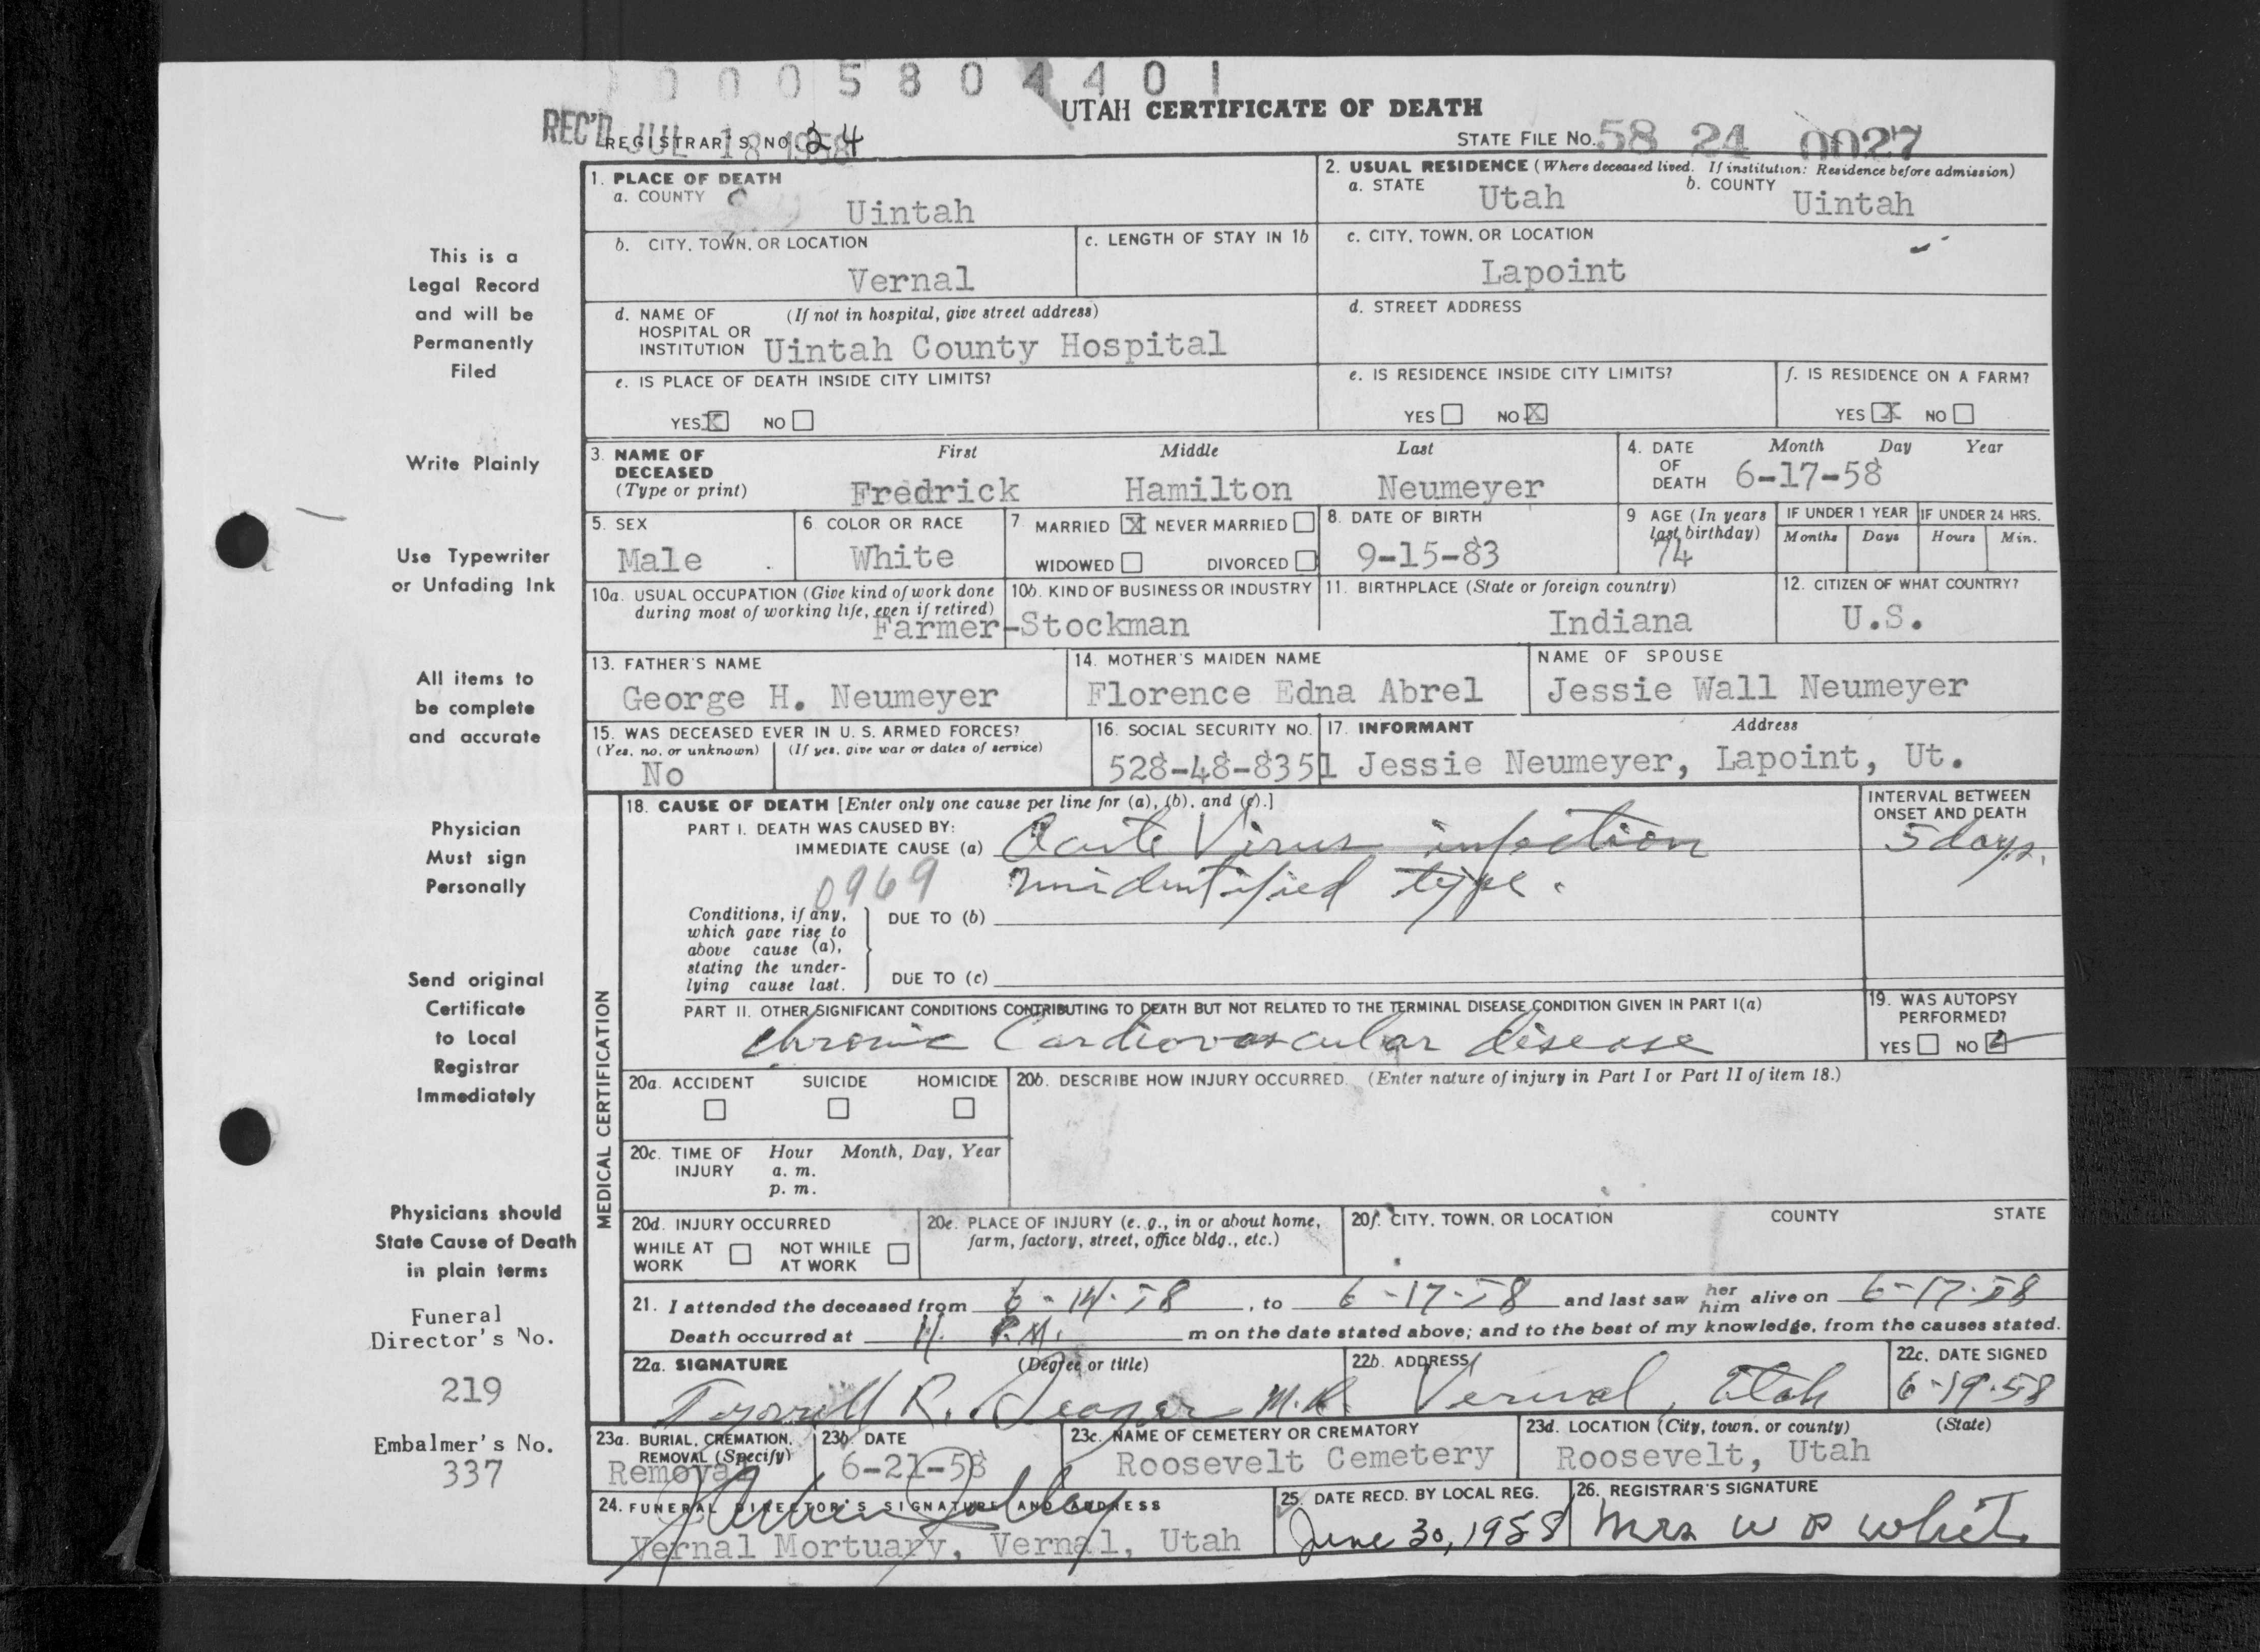 0 0 0 5 8 0 4 4 0 1
UTAH CERTIFICATE OF DEATH
REC'D JUL 18 1958
REGISTRAR'S NO. 24
STATE FILE NO. 58 24 0027
This is a
Legal Record
and will be
Permanently
Filed
Write Plainly
Use Typewriter
or Unfading Ink
All items to
be complete
and accurate
Physician
Must sign
Personally
Send original
Certificate
to Local
Registrar
Immediately
Physicians should
State Cause of Death
in plain terms
Funeral
Director's No.
219
Embalmer's No.
337
1. PLACE OF DEATH
a. COUNTY
Uintah
2. USUAL RESIDENCE (Where deceased lived. If institution: Residence before admission)
a. STATE Utah b. COUNTY Uintah
b. CITY, TOWN, OR LOCATION
Vernal
c. LENGTH OF STAY IN 1b
c. CITY, TOWN, OR LOCATION
Lapoint
d. NAME OF (If not in hospital, give street address)
HOSPITAL OR
INSTITUTION Uintah County Hospital
d. STREET ADDRESS
e. IS PLACE OF DEATH INSIDE CITY LIMITS?
YES X NO
e. IS RESIDENCE INSIDE CITY LIMITS?
YES NO X
f. IS RESIDENCE ON A FARM?
YES X NO
3. NAME OF DECEASED
(Type or print)
First Middle Last
Fredrick Hamilton Neumeyer
4. DATE OF DEATH
Month Day Year
6-17-58
5. SEX
Male
6. COLOR OR RACE
White
7. MARRIED X NEVER MARRIED
WIDOWED DIVORCED
8. DATE OF BIRTH
9-15-83
9 AGE (In years
last birthday)
74
IF UNDER 1 YEAR
Months Days
IF UNDER 24 HRS.
Hours Min.
10a. USUAL OCCUPATION (Give kind of work done
during most of working life, even if retired)
10b. KIND OF BUSINESS OR INDUSTRY
Farmer-Stockman
11. BIRTHPLACE (State or foreign country)
Indiana
12. CITIZEN OF WHAT COUNTRY?
U.S.
13. FATHER'S NAME
George H. Neumeyer
14. MOTHER'S MAIDEN NAME
Florence Edna Abrel
NAME OF SPOUSE
Jessie Wall Neumeyer
15. WAS DECEASED EVER IN U. S. ARMED FORCES?
(Yes, no, or unknown) (If yes, give war or dates of service)
No
16. SOCIAL SECURITY NO.
528-48-8351
17. INFORMANT Address
Jessie Neumeyer, Lapoint, Ut.
MEDICAL CERTIFICATION
18. CAUSE OF DEATH [Enter only one cause per line for (a), (b), and (c).]
PART I. DEATH WAS CAUSED BY:
IMMEDIATE CAUSE (a) Acute Virus infection
unidentified type.
0969
INTERVAL BETWEEN
ONSET AND DEATH
5 days.
Conditions, if any,
which gave rise to
above cause (a),
stating the under-
lying cause last.
DUE TO (b)
DUE TO (c)
PART II. OTHER SIGNIFICANT CONDITIONS CONTRIBUTING TO DEATH BUT NOT RELATED TO THE TERMINAL DISEASE CONDITION GIVEN IN PART I(a)
chronic Cardiovascular disease
19. WAS AUTOPSY
PERFORMED?
YES NO
20a. ACCIDENT SUICIDE HOMICIDE
20b. DESCRIBE HOW INJURY OCCURRED. (Enter nature of injury in Part I or Part II of item 18.)
20c. TIME OF INJURY
Hour Month, Day, Year
a. m.
p. m.
20d. INJURY OCCURRED
WHILE AT WORK NOT WHILE AT WORK
20e. PLACE OF INJURY (e. g., in or about home,
farm, factory, street, office bldg., etc.)
20f. CITY, TOWN, OR LOCATION COUNTY STATE
21. I attended the deceased from 6-14-58, to 6-17-58 and last saw her him alive on 6-17-58
Death occurred at 11. P.M. m on the date stated above; and to the best of my knowledge, from the causes stated.
22a. SIGNATURE (Degree or title)
R. Seager M.D.
22b. ADDRESS
Vernal, Utah
22c. DATE SIGNED
6-19-58
23a. BURIAL, CREMATION,
REMOVAL (Specify)
Removal
23b. DATE
6-21-58
23c. NAME OF CEMETERY OR CREMATORY
Roosevelt Cemetery
23d. LOCATION (City, town, or county) (State)
Roosevelt, Utah
24. FUNERAL DIRECTOR'S SIGNATURE AND ADDRESS
Vernal Mortuary, Vernal, Utah
25. DATE RECD. BY LOCAL REG.
June 30, 1958
26. REGISTRAR'S SIGNATURE
Mrs W P White